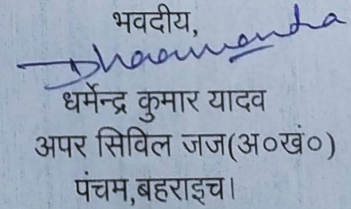 भवदीय,
Dharmendra
धर्मेन्द्र कुमार यादव
अपर सिविल जज(अ०खं०)
पंचम,बहराइच।